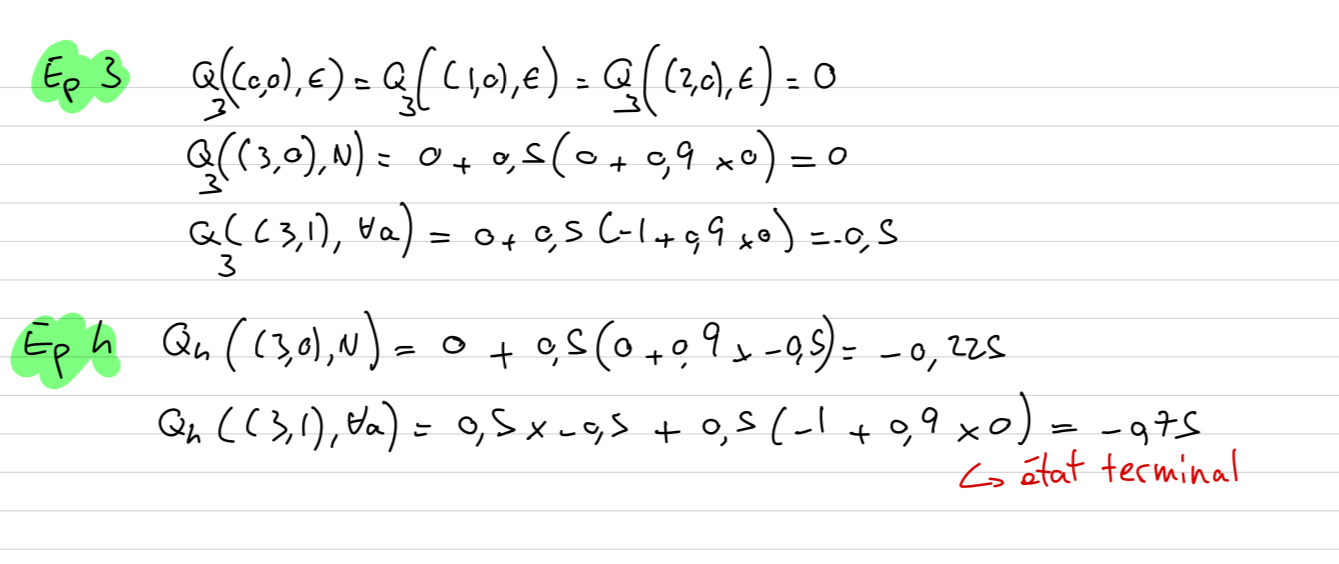 Ep 3 Q₃((0,0), E) = Q₃((1,0), E) = Q₃((2,0), E) = 0
Q₃((3,0), N) = 0 + 0,5(0 + 0,9 × 0) = 0
Q₃((3,1), ∀a) = 0 + 0,5(-1 + 0,9 × 0) = -0,5
Ep 4 Q₄((3,0), N) = 0 + 0,5(0 + 0,9 × -0,5) = -0,225
Q₄((3,1), ∀a) = 0,5 × -0,5 + 0,5(-1 + 0,9 × 0) = -0,75
↪ état terminal